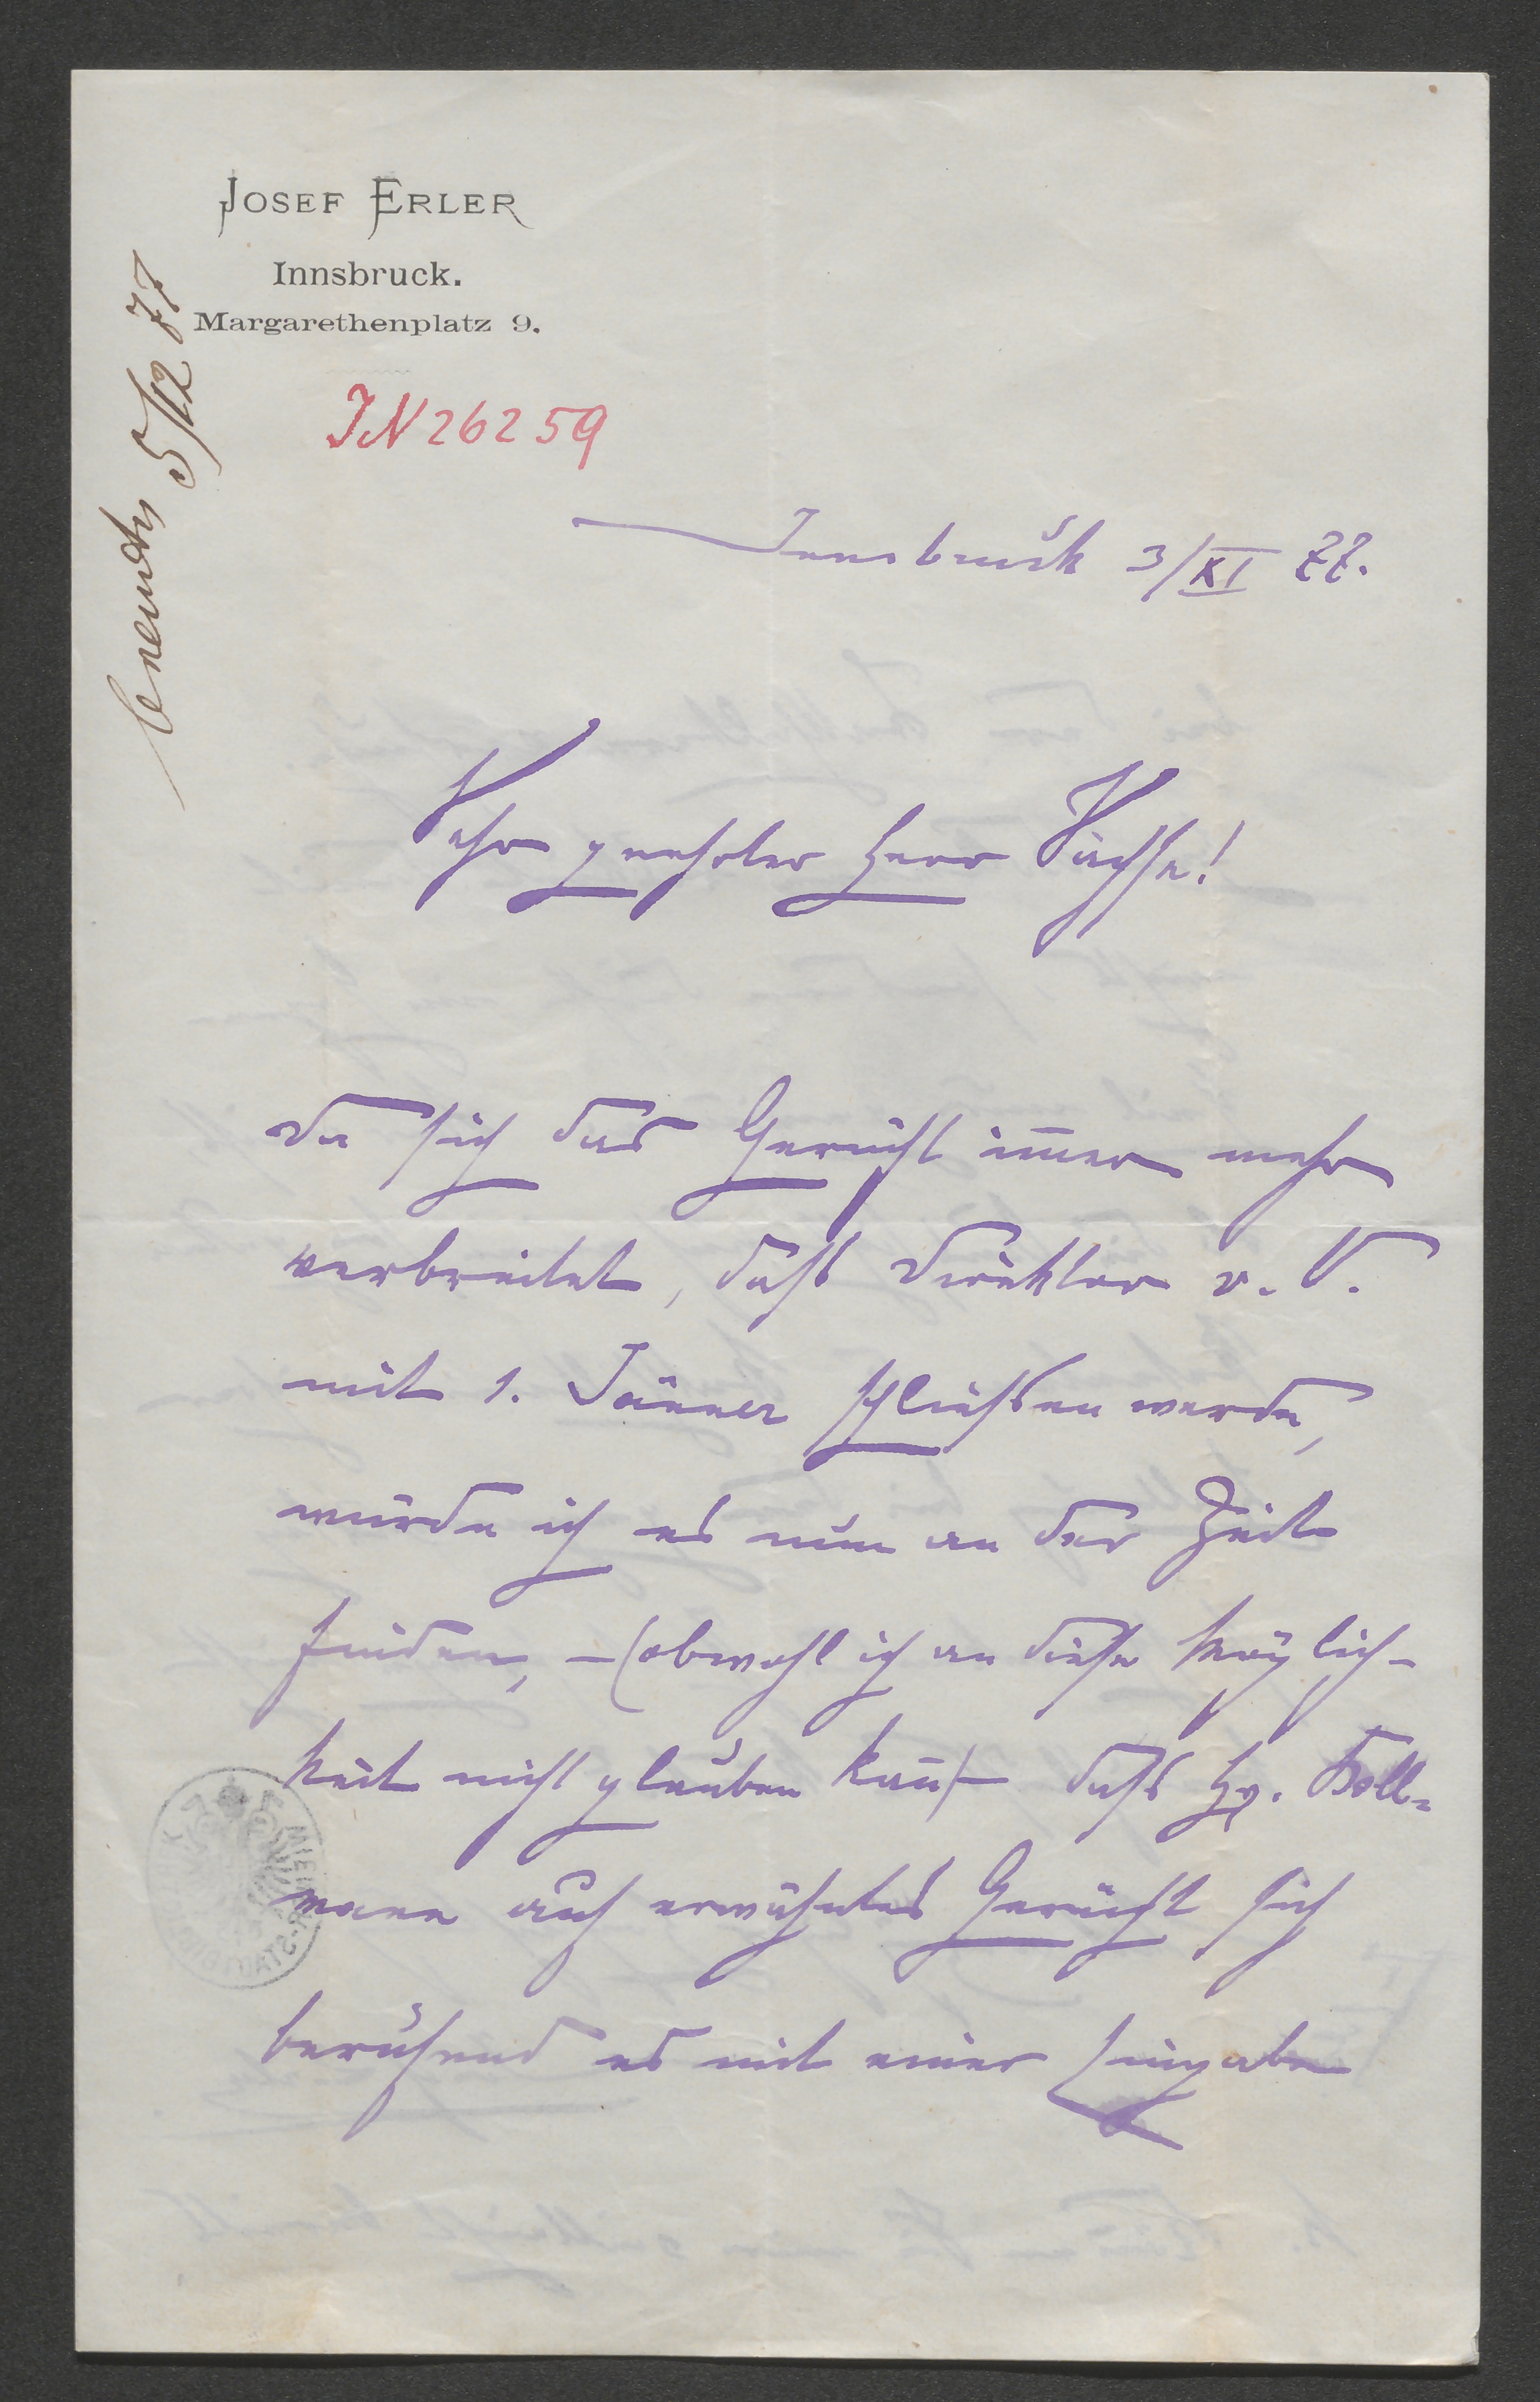 JOSEF ERLER
Innsbruck.
Margarethenplatz 9.
5/12 77
IN 26259
Innsbruck 3/XI 77.
Sehr geehrter Herr Sachse!
Da sich das Gerücht im̅er mehr
verbreitet, daß Direktor v. V.
mit 1. Jänner schließen werde,
würde ich es nun an der Zeit
finden, – (obwohl ich an diese Möglich-
keit nicht glauben kan̅) – daß Hr. Koll-
mann auf erwähntes Gerücht sich
berufend es mit einer Eingabe